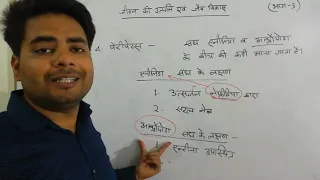 जीवन की उत्पत्ति एवं जैव विकास (भाग-3)
4. पेरीपेटस → संघ एनीलिडा व आर्थ्रोपोडा
के बीच की कड़ी माना जाता है।
एनीलिडा संघ के लक्षण
1. उत्सर्जन नेफ्रीडिया द्वारा
2. सरल नेत्र
आर्थ्रोपोडा संघ के लक्षण -
एन्टीना उपस्थित